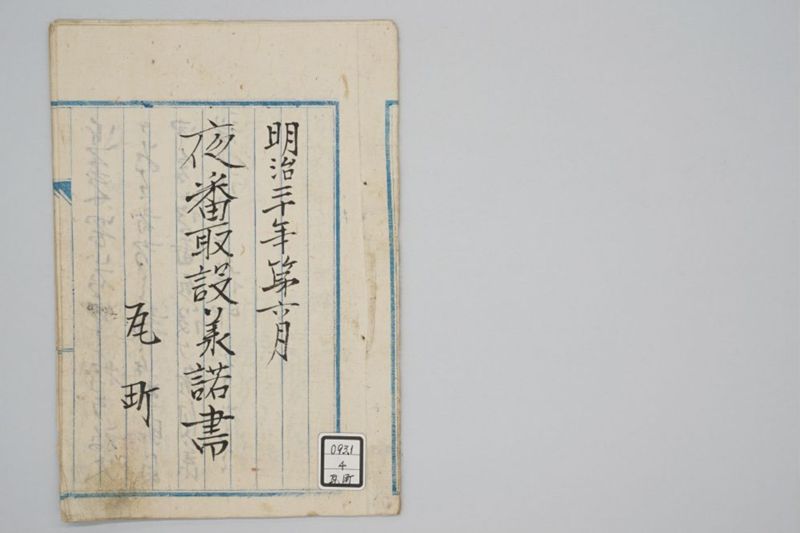 明治三十年第六月
夜番取設承諾書
瓦町
0931
4
瓦町